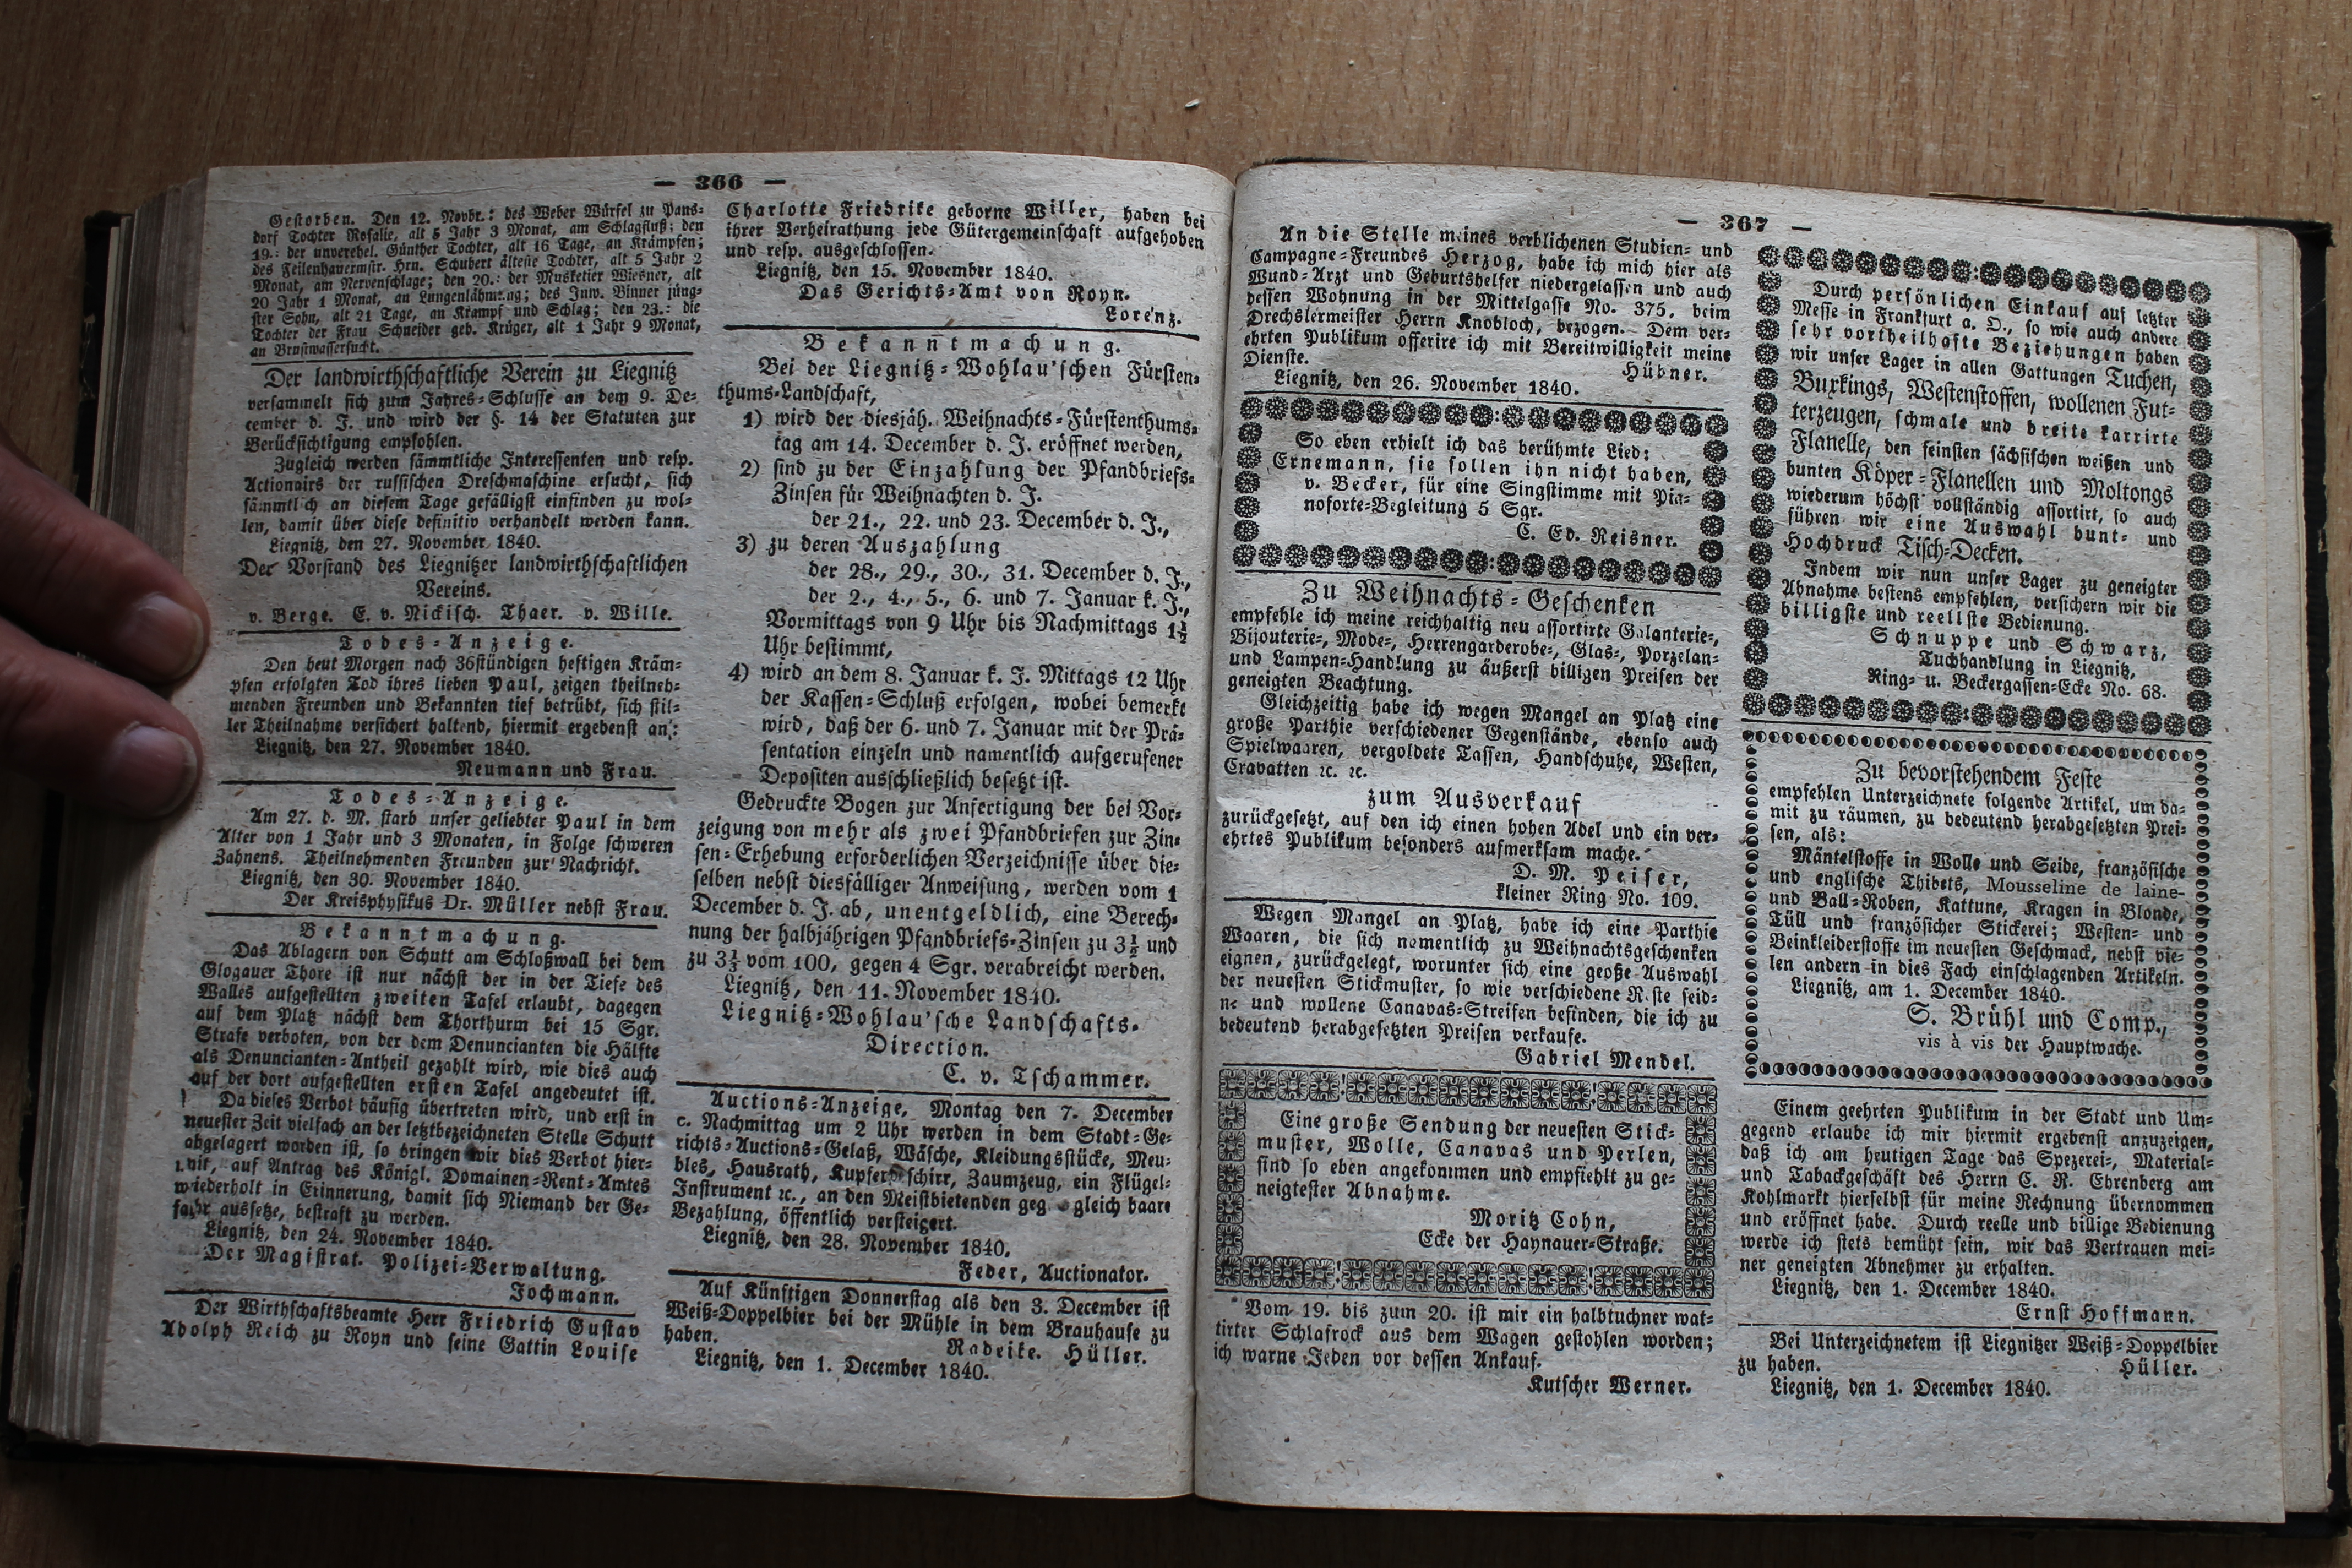 — 366 —
Gestorben. Den 12. Novbr.: des Weber Würfel zu Pans-
dorf Tochter Rosalie, alt 5 Jahr 3 Monat, am Schlagfluß; den
19.: der unverehel. Günther Tochter, alt 16 Tage, an Krämpfen;
des Feilenhauermstr. Hrn. Schubert älteste Tochter, alt 5 Jahr 2
Monat, am Nervenschlage; den 20.: der Musketier Wiesner, alt
20 Jahr 1 Monat, an Lungenlähmung; des Inw. Binner jüng-
ster Sohn, alt 21 Tage, an Krampf und Schlag; den 23.: die
Tochter der Frau Schneider geb. Krüger, alt 1 Jahr 9 Monat,
an Brustwassersucht.
Der landwirthschaftliche Verein zu Liegnitz
versammelt sich zum Jahres-Schlusse an dem 9. De-
cember d. J. und wird der §. 14 der Statuten zur
Berücksichtigung empfohlen.
Zugleich werden sämmtliche Interessenten und resp.
Actionairs der russischen Dreschmaschine ersucht, sich
sämmtlich an diesem Tage gefälligst einfinden zu wol-
len, damit über diese definitiv verhandelt werden kann.
Liegnitz, den 27. November 1840.
Der Vorstand des Liegnitzer landwirthschaftlichen
Vereins.
v. Berge. E. v. Nickisch. Thaer. v. Wille.
Todes-Anzeige.
Den heut Morgen nach 36stündigen heftigen Kräm-
pfen erfolgten Tod ihres lieben Paul, zeigen theilneh-
menden Freunden und Bekannten tief betrübt, sich stil-
ler Theilnahme versichert haltend, hiermit ergebenst an:
Liegnitz, den 27. November 1840.
Neumann und Frau.
Todes-Anzeige.
Am 27. d. M. starb unser geliebter Paul in dem
Alter von 1 Jahr und 3 Monaten, in Folge schweren
Zahnens. Theilnehmenden Freunden zur Nachricht.
Liegnitz, den 30. November 1840.
Der Kreisphysikus Dr. Müller nebst Frau.
Bekanntmachung.
Das Ablagern von Schutt am Schloßwall bei dem
Glogauer Thore ist nur nächst der in der Tiefe des
Walles aufgestellten zweiten Tafel erlaubt, dagegen
auf dem Platz nächst dem Thorthurm bei 15 Sgr.
Strafe verboten, von der dem Denuncianten die Hälfte
als Denuncianten-Antheil gezahlt wird, wie dies auch
auf der dort aufgestellten ersten Tafel angedeutet ist.
Da dieses Verbot häufig übertreten wird, und erst in
neuester Zeit vielfach an der letztbezeichneten Stelle Schutt
abgelagert worden ist, so bringen wir dies Verbot hier-
mit, auf Antrag des Königl. Domainen-Rent-Amtes
wiederholt in Erinnerung, damit sich Niemand der Ge-
fahr aussetze, bestraft zu werden.
Liegnitz, den 24. November 1840.
Der Magistrat. Polizei-Verwaltung.
Jochmann.
Der Wirthschaftsbeamte Herr Friedrich Gustav
Adolph Reich zu Royn und seine Gattin Louise
Charlotte Friedrike geborne Willer, haben bei
ihrer Verheirathung jede Gütergemeinschaft aufgehoben
und resp. ausgeschlossen.
Liegnitz, den 15. November 1840.
Das Gerichts-Amt von Royn.
Lorenz.
Bekanntmachung.
Bei der Liegnitz-Wohlau'schen Fürsten-
thums-Landschaft,
1) wird der diesjäh. Weihnachts-Fürstenthums-
tag am 14. December d. J. eröffnet werden,
2) sind zu der Einzahlung der Pfandbriefs-
Zinsen für Weihnachten d. J.
der 21., 22. und 23. December d. J.,
3) zu deren Auszahlung
der 28., 29., 30., 31. December d. J.,
der 2., 4., 5., 6. und 7. Januar k. J.,
Vormittags von 9 Uhr bis Nachmittags 1½
Uhr bestimmt,
4) wird an dem 8. Januar k. J. Mittags 12 Uhr
der Kassen-Schluß erfolgen, wobei bemerkt
wird, daß der 6. und 7. Januar mit der Prä-
sentation einzeln und namentlich aufgerufener
Depositen ausschließlich besetzt ist.
Gedruckte Bogen zur Anfertigung der bei Vor-
zeigung von mehr als zwei Pfandbriefen zur Zin-
sen-Erhebung erforderlichen Verzeichnisse über die-
selben nebst diesfälliger Anweisung, werden vom 1
December d. J. ab, unentgeldlich, eine Berech-
nung der halbjährigen Pfandbriefs-Zinsen zu 3½ und
zu 3⅓ vom 100, gegen 4 Sgr. verabreicht werden.
Liegnitz, den 11. November 1840.
Liegnitz-Wohlau'sche Landschafts-
Direction.
C. v. Tschammer.
Auctions-Anzeige. Montag den 7. December
c. Nachmittag um 2 Uhr werden in dem Stadt-Ge-
richts-Auctions-Gelaß, Wäsche, Kleidungsstücke, Meu-
bles, Hausrath, Kupfergeschirr, Zaumzeug, ein Flügel-
Instrument ꝛc., an den Meistbietenden geg gleich baare
Bezahlung, öffentlich versteigert.
Liegnitz, den 28. November 1840.
Feder, Auctionator.
Auf Künftigen Donnerstag als den 3. December ist
Weiß-Doppelbier bei der Mühle in dem Brauhause zu
haben.
Radeike. Hüller.
Liegnitz, den 1. December 1840.
— 367 —
An die Stelle meines verblichenen Studien- und
Campagne-Freundes Herzog, habe ich mich hier als
Wund-Arzt und Geburtshelfer niedergelassen und auch
dessen Wohnung in der Mittelgasse No. 375. beim
Drechslermeister Herrn Knobloch, bezogen. Dem ver-
ehrten Publikum offerire ich mit Bereitwilligkeit meine
Dienste.
Hübner.
Liegnitz, den 26. November 1840.
So eben erhielt ich das berühmte Lied:
Ernemann, sie sollen ihn nicht haben,
v. Becker, für eine Singstimme mit Pia-
noforte-Begleitung 5 Sgr.
C. Ed. Reisner.
Zu Weihnachts-Geschenken
empfehle ich meine reichhaltig neu assortirte Galanterie-,
Bijouterie-, Mode-, Herrengarderobe-, Glas-, Porzelan-
und Lampen-Handlung zu äußerst billigen Preisen der
geneigten Beachtung.
Gleichzeitig habe ich wegen Mangel an Platz eine
große Parthie verschiedener Gegenstände, ebenso auch
Spielwaaren, vergoldete Tassen, Handschuhe, Westen,
Cravatten ꝛc. ꝛc.
zum Ausverkauf
zurückgesetzt, auf den ich einen hohen Adel und ein ver-
ehrtes Publikum besonders aufmerksam mache.
D. M. Peiser,
kleiner Ring No. 109.
Wegen Mangel an Platz, habe ich eine Parthie
Waaren, die sich namentlich zu Weihnachtsgeschenken
eignen, zurückgelegt, worunter sich eine große Auswahl
der neuesten Stickmuster, so wie verschiedene Reste seid-
n- und wollene Canavas-Streifen befinden, die ich zu
bedeutend herabgesetzten Preisen verkaufe.
Gabriel Mendel.
Eine große Sendung der neuesten Stick-
muster, Wolle, Canavas und Perlen,
sind so eben angekommen und empfiehlt zu ge-
neigtester Abnahme.
Moritz Cohn,
Ecke der Haynauer-Straße.
Vom 19. bis zum 20. ist mir ein halbtuchner wat-
tirter Schlafrock aus dem Wagen gestohlen worden;
ich warne Jeden vor dessen Ankauf.
Kutscher Werner.
Durch persönlichen Einkauf auf letzter
Messe in Frankfurt a. O., so wie auch andere
sehr vortheilhafte Beziehungen haben
wir unser Lager in allen Gattungen Tuchen,
Buxkings, Westenstoffen, wollenen Fut-
terzeugen, schmale und breite karrirte
Flanelle, den feinsten sächsischen weißen und
bunten Köper-Flanellen und Moltongs
wiederum höchst vollständig assortirt, so auch
führen wir eine Auswahl bunt- und
Hochdruck Tisch-Decken.
Indem wir nun unser Lager zu geneigter
Abnahme bestens empfehlen, versichern wir die
billigste und reellste Bedienung.
Schnuppe und Schwarz,
Tuchhandlung in Liegnitz,
Ring- u. Beckergassen-Ecke No. 68.
Zu bevorstehendem Feste
empfehlen Unterzeichnete folgende Artikel, um da-
mit zu räumen, zu bedeutend herabgesetzten Prei-
sen, als:
Mäntelstoffe in Wolle und Seide, französische
und englische Thibets, Mousseline de laine-
und Ball-Roben, Kattune, Kragen in Blonde,
Tüll und französicher Stickerei; Westen- und
Beinkleiderstoffe im neuesten Geschmack, nebst vie-
len andern in dies Fach einschlagenden Artikeln.
Liegnitz, am 1. December 1840.
S. Brühl und Comp.,
vis à vis der Hauptwache.
Einem geehrten Publikum in der Stadt und Um-
gegend erlaube ich mir hiermit ergebenst anzuzeigen,
daß ich am heutigen Tage das Spezerei-, Material-
und Tabackgeschäft des Herrn C. R. Ehrenberg am
Kohlmarkt hierselbst für meine Rechnung übernommen
und eröffnet habe. Durch reelle und billige Bedienung
werde ich stets bemüht sein, wir das Vertrauen mei-
ner geneigten Abnehmer zu erhalten.
Liegnitz, den 1. December 1840.
Ernst Hoffmann.
Bei Unterzeichnetem ist Liegnitzer Weiß-Doppelbier
zu haben.
Hüller.
Liegnitz, den 1. December 1840.